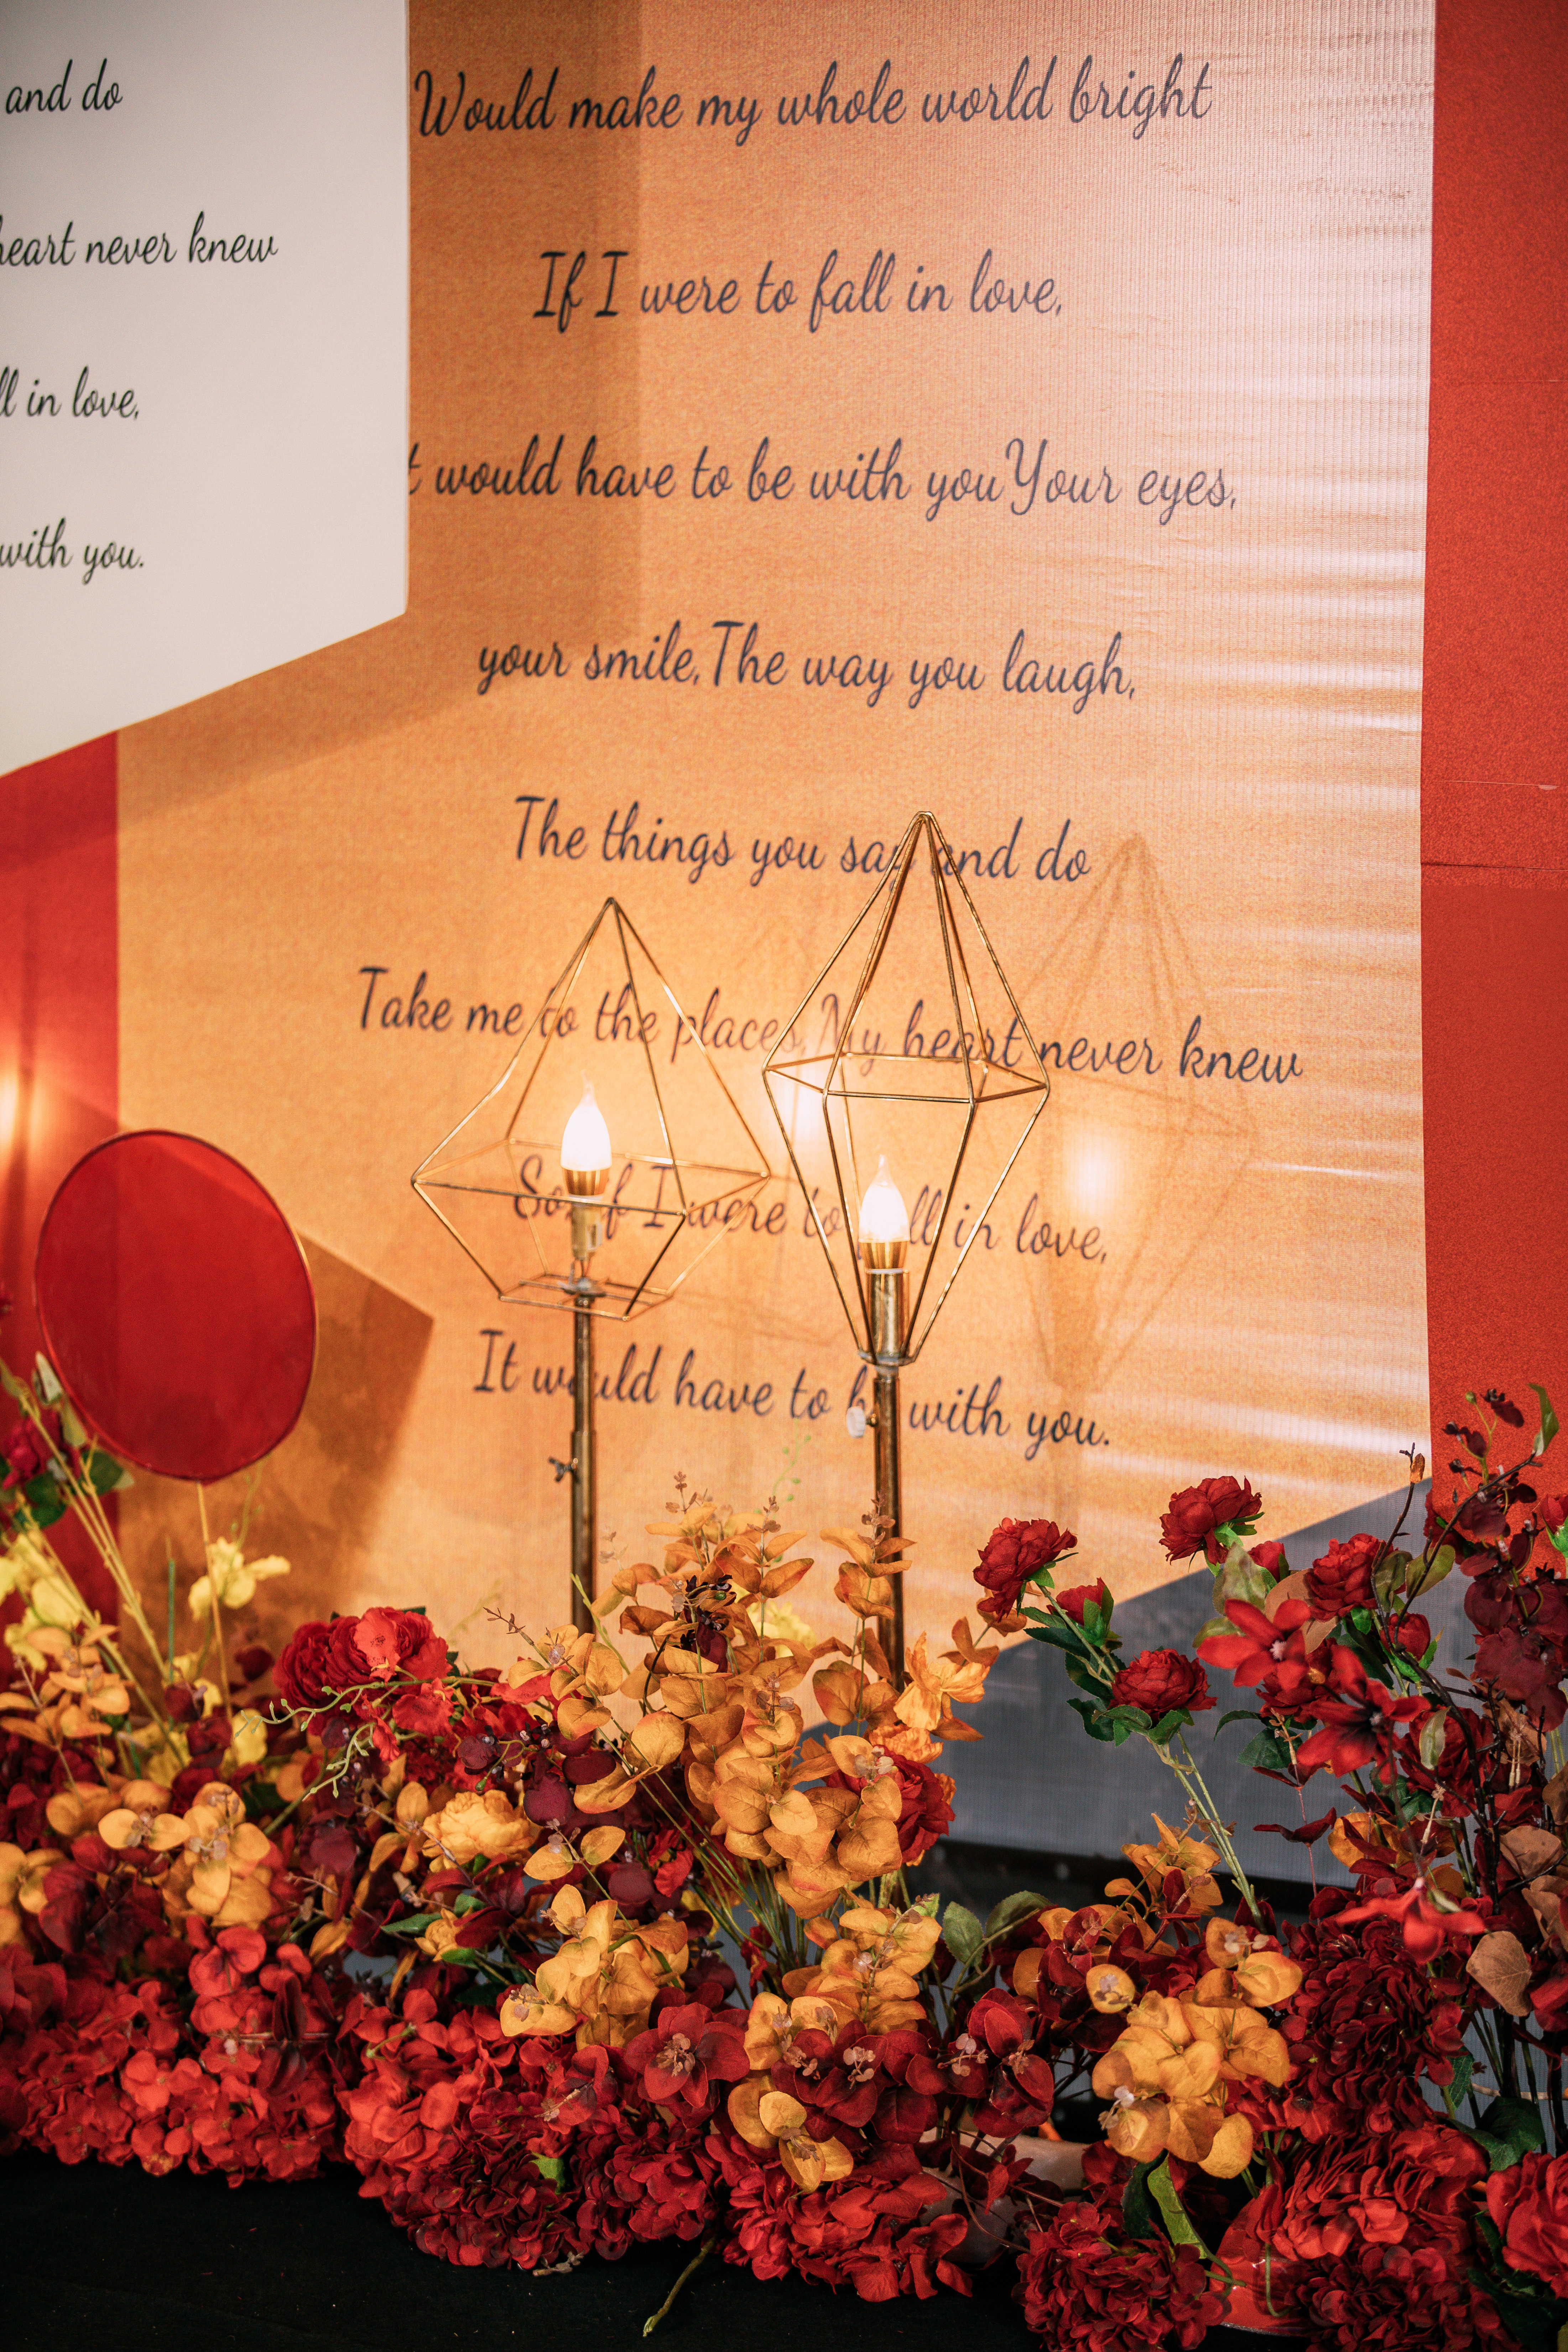 and do
heart never knew
ll in love,
with you.
Would make my whole world bright
If I were to fall in love,
t would have to be with youYour eyes,
your smile,The way you laugh,
The things you say and do
Take me to the places,My heart never knew
So, if I were to fall in love,
It would have to be with you.